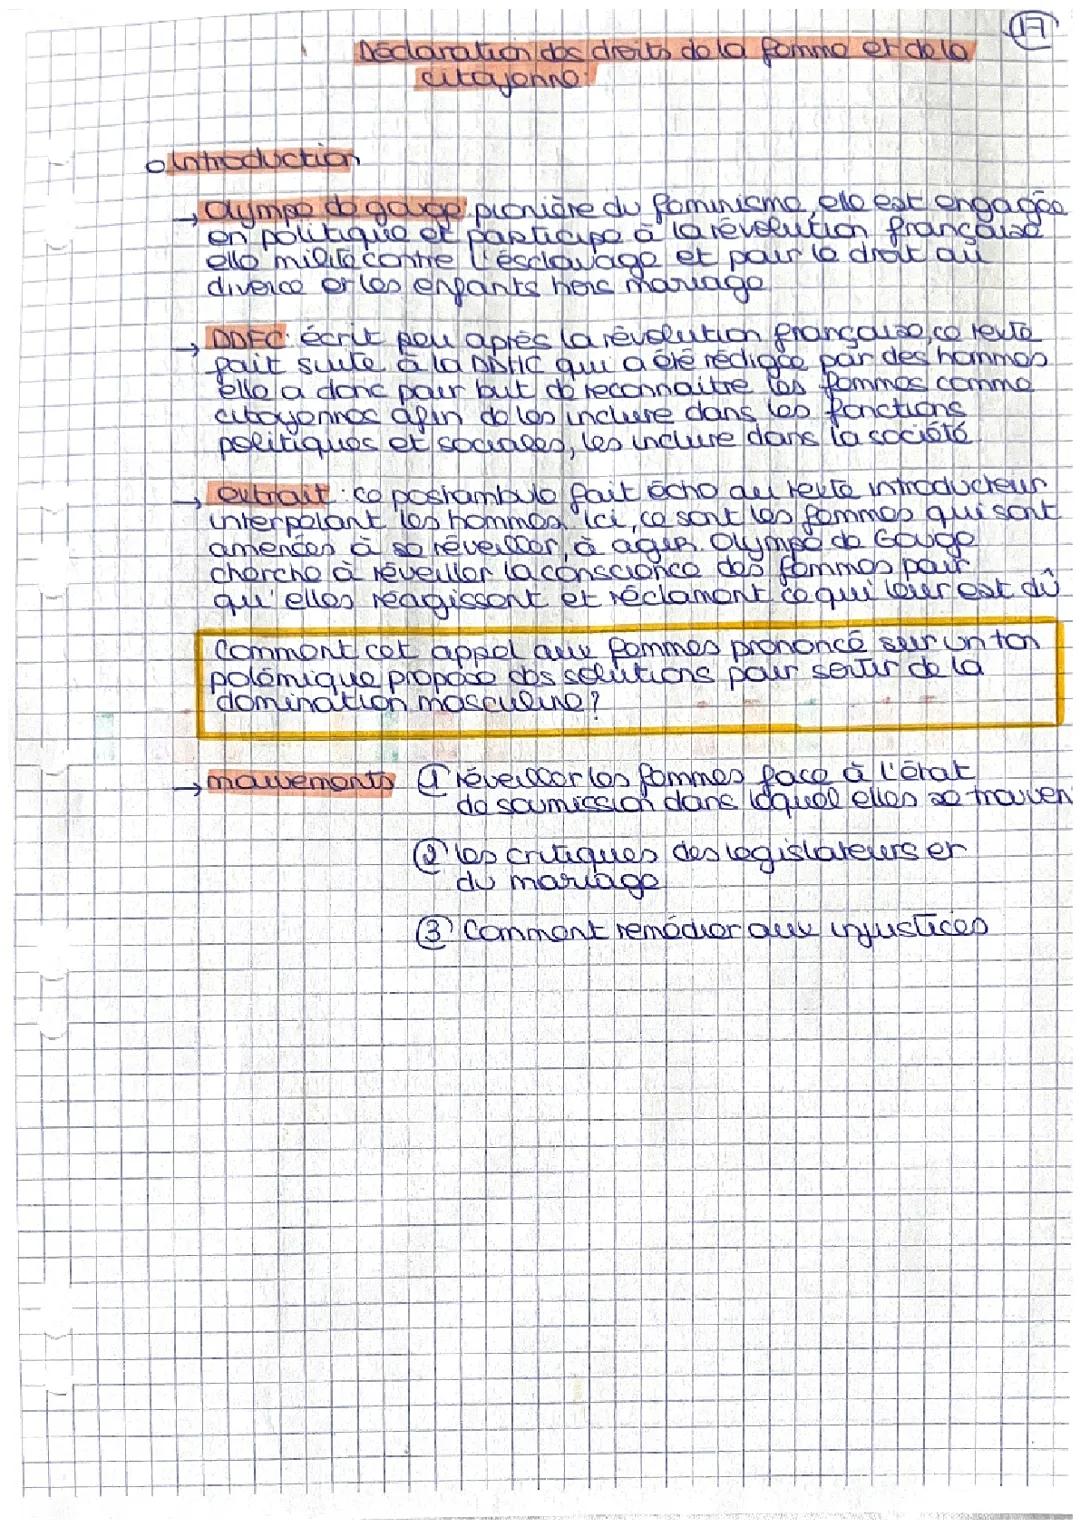 17
Déclaration des droits de la femme et de la
citoyenne.
Introduction
→ Olympe de gouge pionière du féminisme, elle est engagée
en politique et participe à la révolution française
elle milite contre l'esclavage et pour le droit au
divorce et les enfants hors mariage
→ DDFC: écrit peu après la révolution française, ce texte
fait suite à la DDHC qui a été rédigée par des hommes
elle a donc pour but de reconnaitre les femmes comme
citoyennes afin de les inclure dans les fonctions
politiques et sociales, les inclure dans la société
→ extrait : ce postambule fait écho au texte introducteur
interpelant les hommes. Ici, ce sont les femmes qui sont
amenées à se réveiller, à agir. Olympe de Gouge
cherche à réveiller la conscience des femmes pour
qu'elles réagissent et réclament ce qui leur est dû
Comment cet appel aux femmes prononcé sur un ton
polémique propose des solutions pour sortir de la
domination masculine?
→ mouvements ① réveiller les femmes face à l'état
de soumission dans lequel elles se trouven
② les critiques des legislateurs et
du mariage
③ Comment remédier aux injustices